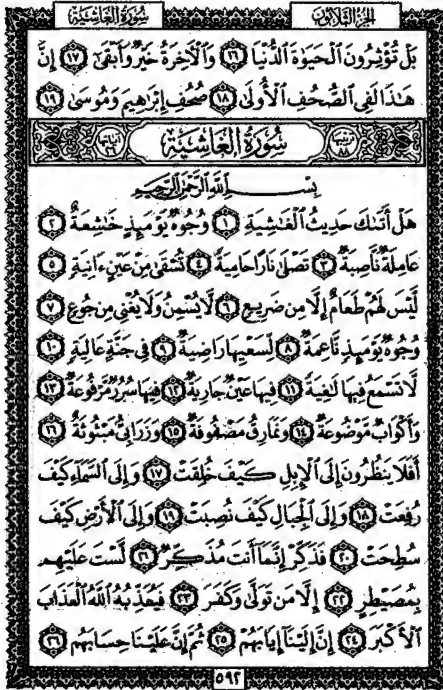 الجزء الثلاثون سورة الغاشية
بَلْ تُؤْثِرُونَ الْحَيَوٰةَ الدُّنْيَا ١٦ وَالْآخِرَةُ خَيْرٌ وَأَبْقَىٰ ١٧ إِنَّ
هَٰذَا لَفِي الصُّحُفِ الْأُولَىٰ ١٨ صُحُفِ إِبْرَٰهِيمَ وَمُوسَىٰ ١٩
سُورَةُ الْغَاشِيَةِ
بِسْمِ اللَّهِ الرَّحْمَٰنِ الرَّحِيمِ
هَلْ أَتَىٰكَ حَدِيثُ الْغَٰشِيَةِ ١ وُجُوهٌ يَوْمَئِذٍ خَٰشِعَةٌ ٢
عَامِلَةٌ نَّاصِبَةٌ ٣ تَصْلَىٰ نَارًا حَامِيَةً ٤ تُسْقَىٰ مِنْ عَيْنٍ ءَانِيَةٍ ٥
لَّيْسَ لَهُمْ طَعَامٌ إِلَّا مِن ضَرِيعٍ ٦ لَّا يُسْمِنُ وَلَا يُغْنِي مِن جُوعٍ ٧
وُجُوهٌ يَوْمَئِذٍ نَّاعِمَةٌ ٨ لِّسَعْيِهَا رَاضِيَةٌ ٩ فِي جَنَّةٍ عَالِيَةٍ ١٠
لَّا تَسْمَعُ فِيهَا لَٰغِيَةً ١١ فِيهَا عَيْنٌ جَارِيَةٌ ١٢ فِيهَا سُرُرٌ مَّرْفُوعَةٌ ١٣
وَأَكْوَابٌ مَّوْضُوعَةٌ ١٤ وَنَمَارِقُ مَصْفُوفَةٌ ١٥ وَزَرَابِيُّ مَبْثُوثَةٌ ١٦
أَفَلَا يَنظُرُونَ إِلَى الْإِبِلِ كَيْفَ خُلِقَتْ ١٧ وَإِلَى السَّمَاءِ كَيْفَ
رُفِعَتْ ١٨ وَإِلَى الْجِبَالِ كَيْفَ نُصِبَتْ ١٩ وَإِلَى الْأَرْضِ كَيْفَ
سُطِحَتْ ٢٠ فَذَكِّرْ إِنَّمَا أَنتَ مُذَكِّرٌ ٢١ لَّسْتَ عَلَيْهِم
بِمُصَيْطِرٍ ٢٢ إِلَّا مَن تَوَلَّىٰ وَكَفَرَ ٢٣ فَيُعَذِّبُهُ اللَّهُ الْعَذَابَ
الْأَكْبَرَ ٢٤ إِنَّ إِلَيْنَا إِيَابَهُمْ ٢٥ ثُمَّ إِنَّ عَلَيْنَا حِسَابَهُم ٢٦
٥٩٢